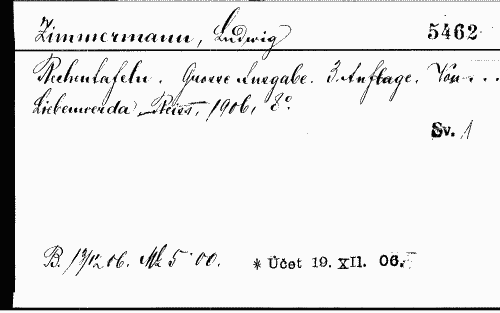 Zimmermann, Ludwig 5462
Rechentafeln. Grosse Ausgabe. 3. Auflage. Von...
Liebenwerda, Reiss, 1906, 8°.
Sv. 1
B. 13/12 06. Mk 5·00. * Účet 19. XII. 06.